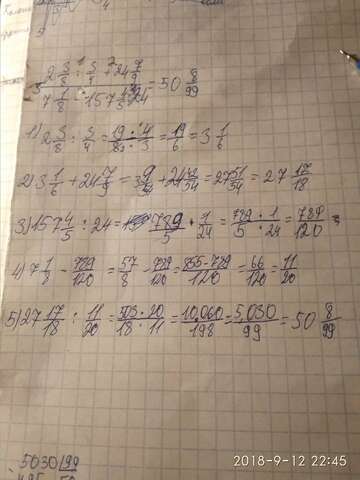 2 3/8 : 3/4 + 24 7/9
7 1/8 - 157 4/5 : 24 = 50 8/99
1) 2 3/8 : 3/4 = 19 · 4 / 8 · 3 = 19/6 = 3 1/6
2) 3 1/6 + 24 7/9 = 3 9/54 + 24 42/54 = 27 51/54 = 27 17/18
3) 157 4/5 : 24 = 789/5 · 1/24 = 789 · 1 / 5 · 24 = 789/120
4) 7 1/8 - 789/120 = 57/8 - 789/120 = 855-789/120 = 66/120 = 11/20
5) 27 17/18 : 11/20 = 503 · 20 / 18 · 11 = 10.060/198 = 5.030/99 = 50 8/99
5030 99
2018-9-12 22:45